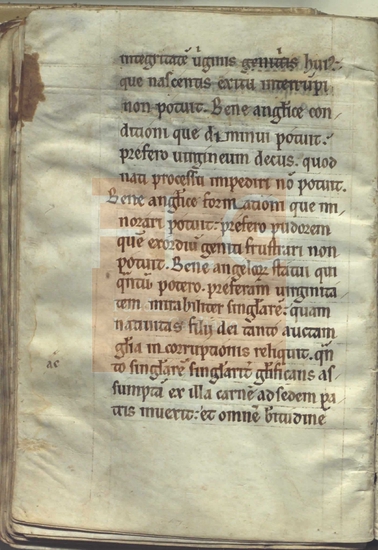 integritatē uirginis genitus hui⁹
que nascentis exitu interrupi
non potuit. Bene angl̄ice con-
ditioni que diminui potuit:
prefero uirgineum decus. quod
nati processu impediri nō potuit.
Bene angl̄ice formationi que mi-
norari potuit: prefero pudorem
quē exordiū geniti frustrari non
potuit. Bene angeloꝝ statui qui
qn̄tū potero. preferam uirginita
tem mirabiliter singl̄arē: quam
natiuitas filij dei tanto auctam
gl̄ia incorruptionis reliquit. qn̄
to singl̄arē singlarit̄ gl̄ificans as-
ae
sumptā ex illa carnē ad sedem pa
tris inuexit: et omnē b̄titudinē